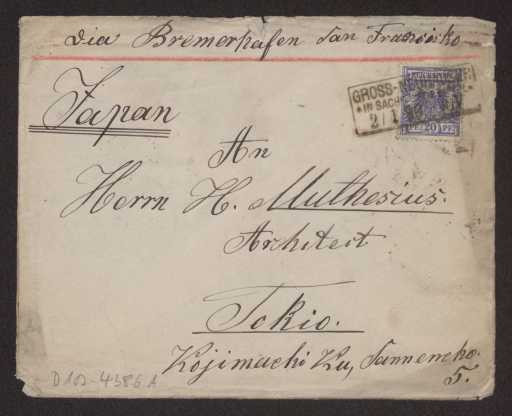 Via Bremerhafen San Francisko
Japan
GROSS-NEUHAUSEN
* IN SACHSEN
2/1
20 PF
An
Herrn H. Muthesius.
Architect
Tokio.
Kojimachi Ku, Sannencho.
5.
D 102-4386 A